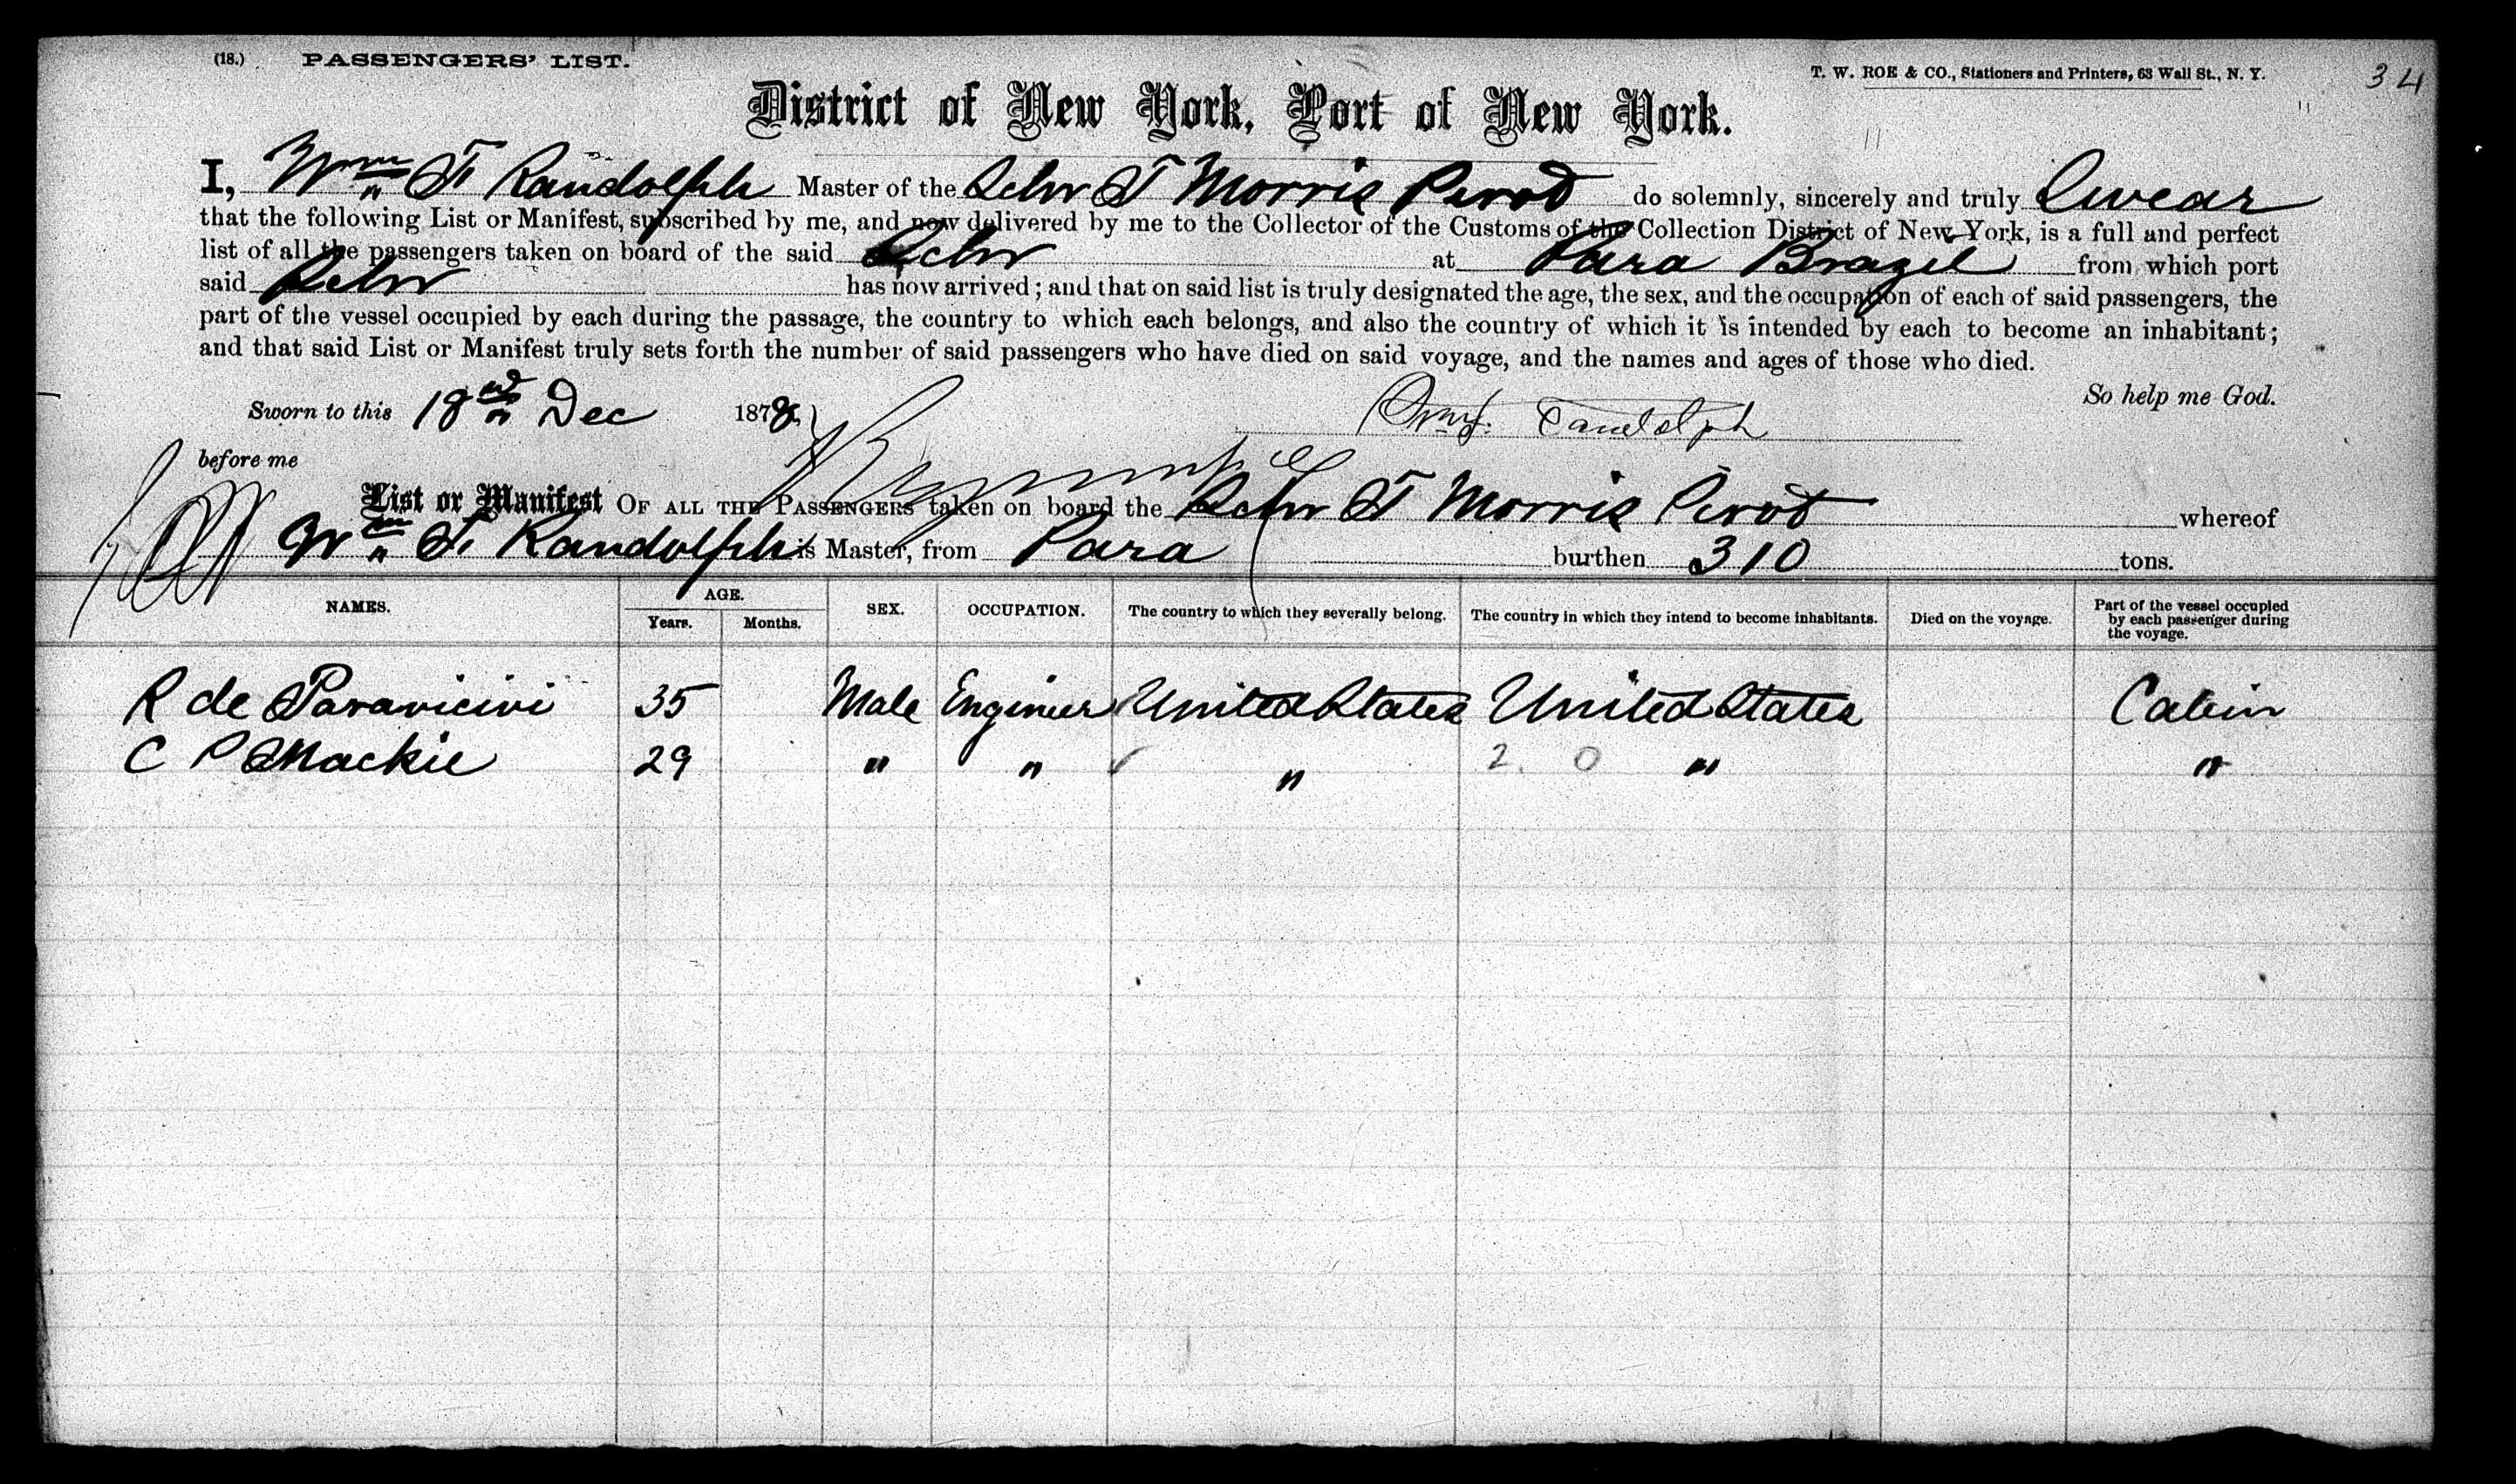 (18.) PASSENGERS' LIST.
T. W. ROE & CO., Stationers and Printers, 63 Wall St., N. Y.
34
District of New York, Port of New York.
I, Wm F. Randolph Master of the Schr T Morris Perot do solemnly, sincerely and truly Swear
that the following List or Manifest, subscribed by me, and now delivered by me to the Collector of the Customs of the Collection District of New York, is a full and perfect
list of all the passengers taken on board of the said Schr at Para Brazil from which port
said Schr has now arrived; and that on said list is truly designated the age, the sex, and the occupation of each of said passengers, the
part of the vessel occupied by each during the passage, the country to which each belongs, and also the country of which it is intended by each to become an inhabitant;
and that said List or Manifest truly sets forth the number of said passengers who have died on said voyage, and the names and ages of those who died.
So help me God.
Sworn to this 18 Dec 1878
Wm F. Randolph
before me
List or Manifest OF ALL THE PASSENGERS taken on board the Schr T Morris Perot whereof
Wm F. Randolph is Master, from Para burthen 310 tons.
NAMES. AGE. Years. Months. SEX. OCCUPATION. The country to which they severally belong. The country in which they intend to become inhabitants. Died on the voyage. Part of the vessel occupied by each passenger during the voyage.
R de Paravicivi 35 Male Engineer United States United States Cabin
C P Mackie 29 " " " 2. 0 " "